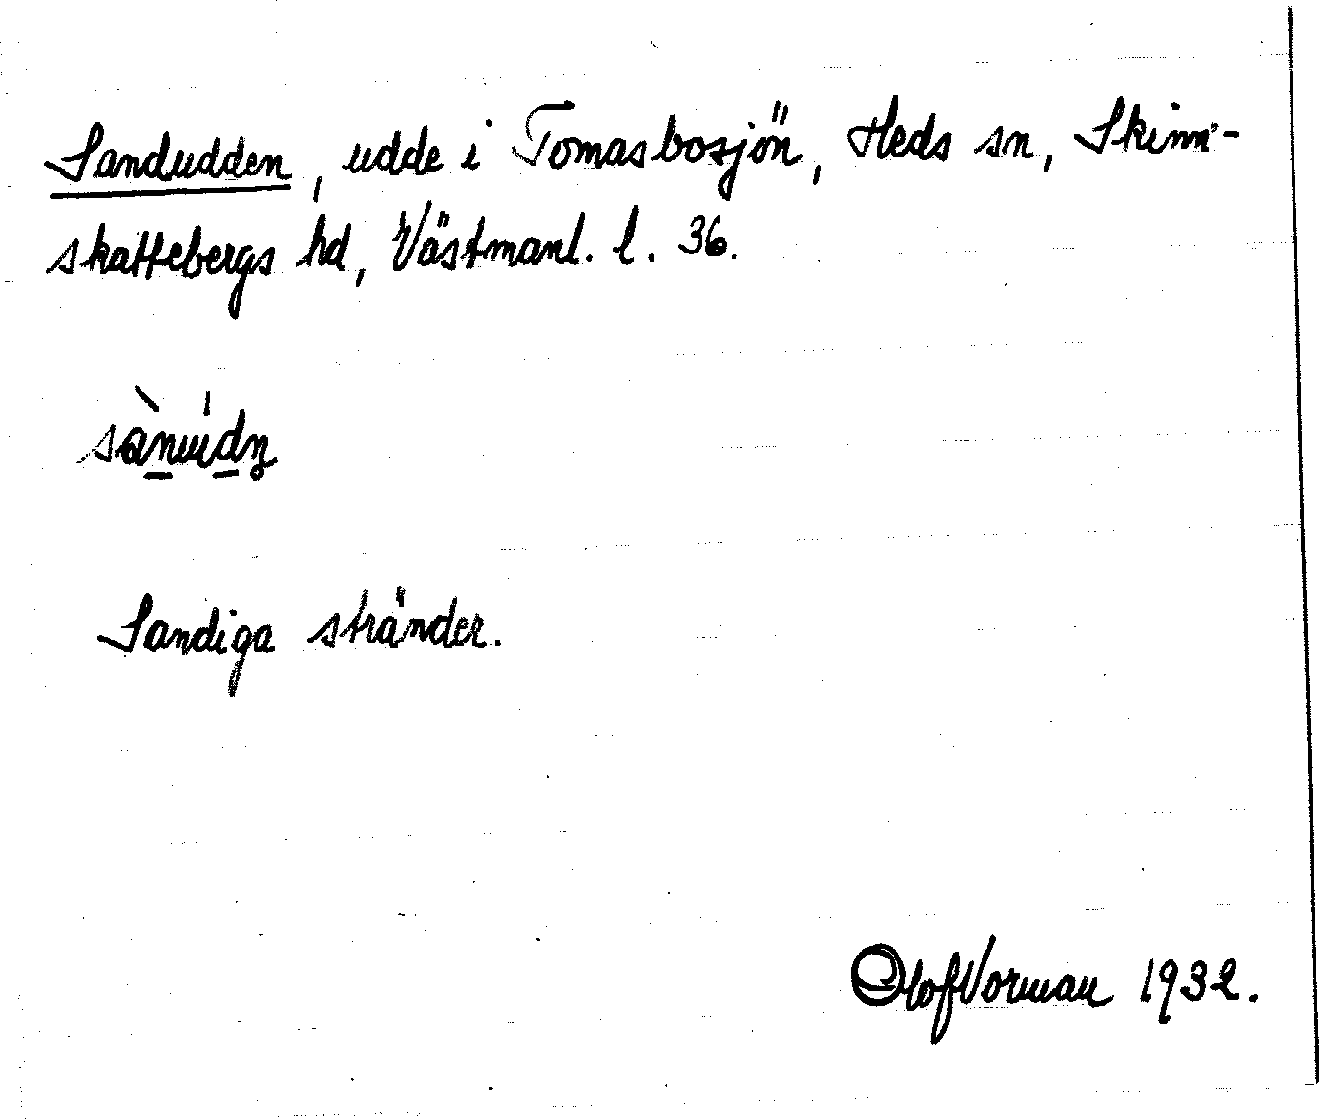 Sandudden, udde i Tomasbosjön, Heds sn, Skinn-
skattebergs hd, Västmanl. l. 36.
sànuídn̥
Sandiga stränder.
Olof Vorman 1932.